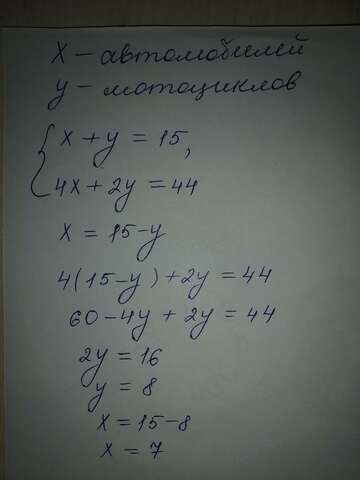 x – автомобилей
y – мотоциклов
{ x + y = 15,
4x + 2y = 44
x = 15 – y
4(15 – y) + 2y = 44
60 – 4y + 2y = 44
2y = 16
y = 8
x = 15 – 8
x = 7